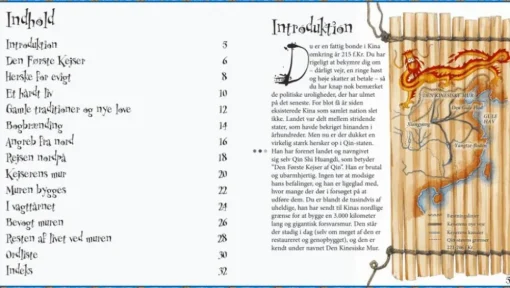 Indhold
Introduktion 5
Den Første Kejser 6
Herske for evigt 8
Et hårdt liv 10
Gamle traditioner og nye love 12
Bogbrænding 14
Angreb fra nord 16
Rejsen nordpå 18
Kejserens mur 20
Muren bygges 22
I vagttårnet 24
Bevogt muren 26
Resten af livet ved muren 28
Ordliste 30
Indeks 32
Introduktion
Du er en fattig bonde i Kina
omkring år 215 f.Kr. Du har
rigeligt at bekymre dig om
– dårligt vejr, en ringe høst
og høje skatter at betale – så
du har knap nok bemærket
de politiske uroligheder, der har ulmet
på det seneste. For blot få år siden
eksisterede Kina som samlet nation slet
ikke. Landet var delt mellem stridende
stater, som havde bekriget hinanden i
århundreder. Men nu er der dukket en
virkelig stærk hersker op i Qin-staten.
Han har forenet landet og navngivet
sig selv Qin Shi Huangdi, som betyder
"Den Første Kejser af Qin". Han er brutal
og ubarmhjertig. Ingen tør at modsige
hans befalinger, og han er ligeglad med,
hvor mange der dør i forsøget på at
udføre dem. Du er blandt de tusindvis af
uheldige, han har sendt til Kinas nordlige
grænse for at bygge en 3.000 kilometer
lang og gigantisk forsvarsmur. Den står
der stadig i dag (selv om meget af den er
restaureret og genopbygget), og den er
kendt under navnet Den Kinesiske Mur.
DEN KINESISKE MUR
Den Gule Flod
GULE
HAV
Xianyang
Yangtze floden
Kejserens store veje
Kejserens kanaler
Qin-statens grænser
221-206 f.Kr.
5